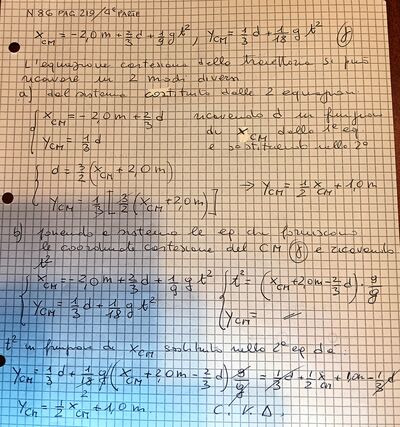 N 86 PAG 219/4ª PARTE
x_CM = -2,0 m + 2/3 d + 1/9 g t² , y_CM = 1/3 d + 1/18 g t² (8)
L'equazione cartesiana della traiettoria si può
ricavare in 2 modi diversi
a) dal sistema costituito dalle 2 equazioni
{ x_CM = -2,0 m + 2/3 d ricavando d in funzione
{ y_CM = 1/3 d di x_CM dalla 1ª eq
e sostituendo nella 2ª
{ d = 3/2 (x_CM + 2,0 m)
{ y_CM = 1/3 [3/2 (x_CM + 2,0 m)] ⇒ y_CM = 1/2 x_CM + 1,0 m
b) ponendo a sistema le eq che forniscono
le coordinate cartesiane del CM (8) e ricavando
t²
{ x_CM = -2,0 m + 2/3 d + 1/9 g t² { t² = (x_CM + 2,0 m - 2/3 d) · 9/g
{ y_CM = 1/3 d + 1/18 g t² { y_CM = //
t² in funzione di x_CM sostituito nella 2ª eq dà:
y_CM = 1/3 d + 1/18 g (x_CM + 2,0 m - 2/3 d) 9/g = 1/3 d + 1/2 x_CM + 1,0 m - 1/3 d
y_CM = 1/2 x_CM + 1,0 m. C. V. D.